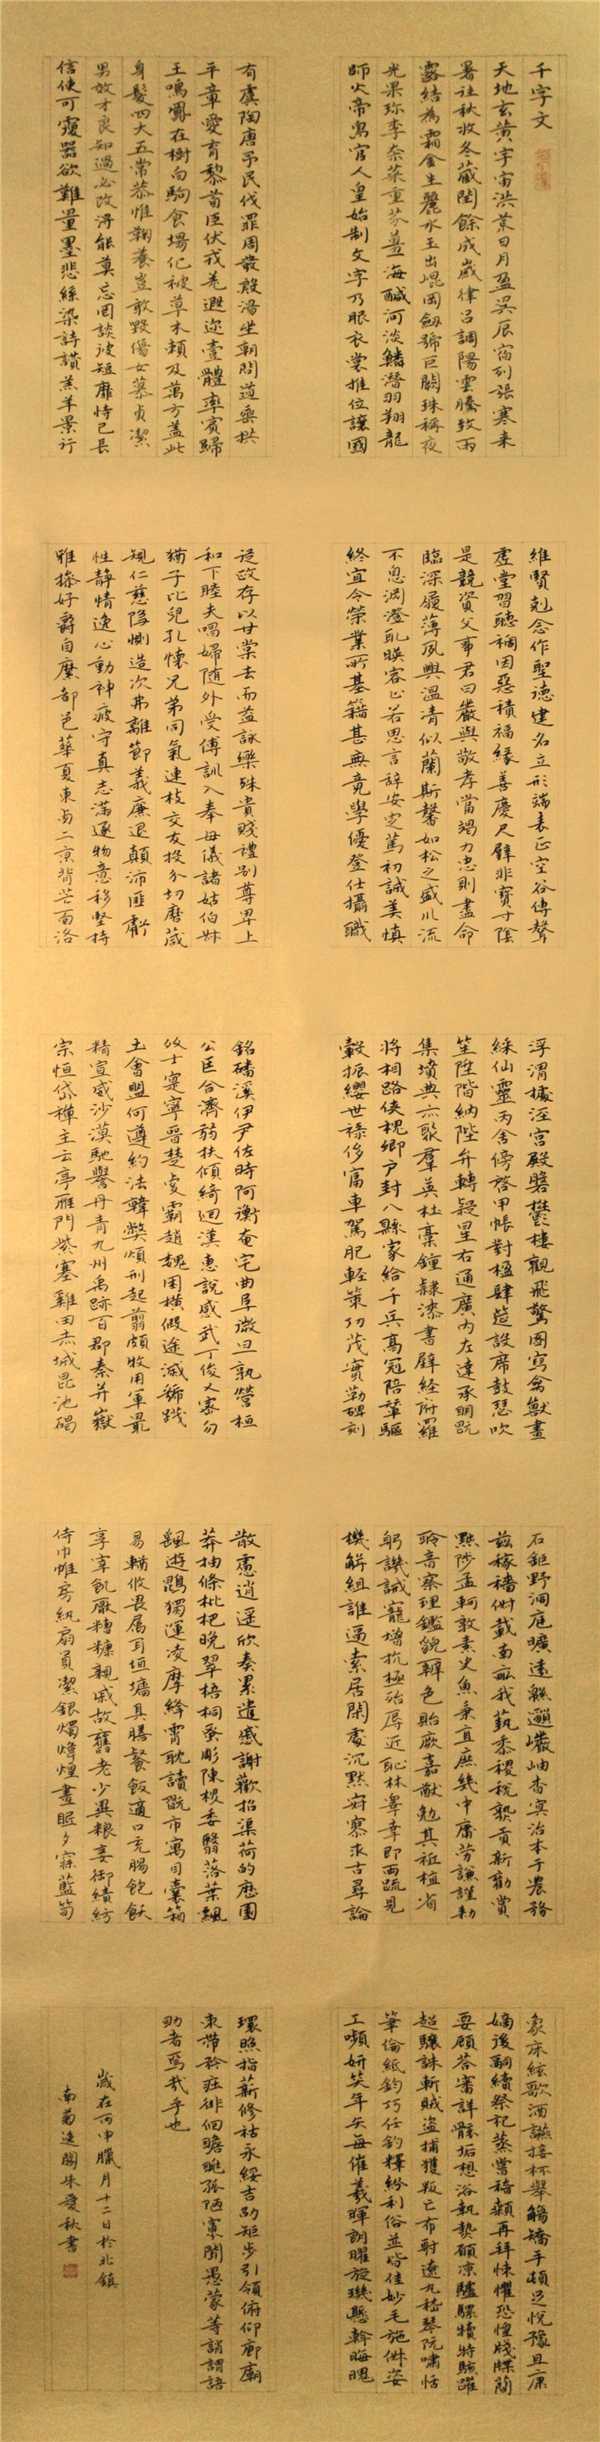 千字文
天地玄黄宇宙洪荒日月盈昃辰宿列張寒来
暑往秋收冬藏閏餘成歲律呂調陽雲騰致雨
露結為霜金生麗水玉出崐岡劔號巨闕珠稱夜
光果珍李柰菜重芥薑海鹹河淡鱗潛羽翔龍
師火帝鳥官人皇始制文字乃服衣裳推位讓國
有虞陶唐弔民伐罪周發殷湯坐朝問道垂拱
平章愛育黎首臣伏戎羌遐迩壹體率賓歸
王鳴鳳在樹白駒食場化被草木賴及萬方盖此
身髮四大五常恭惟鞠養豈敢毀傷女慕貞潔
男效才良知過必改得能莫忘罔談彼短靡恃己長
信使可覆器欲難量墨悲絲染詩讚羔羊景行
維賢剋念作聖德建名立形端表正空谷傳聲
虛堂習聽禍因惡積福緣善慶尺璧非寶寸陰
是競資父事君曰嚴與敬孝當竭力忠則盡命
臨深履薄夙興溫凊似蘭斯馨如松之盛川流
不息淵澄取暎容止若思言辭安定篤初誠美慎
終宜令榮業所基籍甚無竟學優登仕攝職
從政存以甘棠去而益詠樂殊貴賤禮別尊卑上
和下睦夫唱婦隨外受傅訓入奉母儀諸姑伯叔
猶子比兒孔懷兄弟同氣連枝交友投分切磨箴
規仁慈隱惻造次弗離節義廉退顛沛匪虧
性靜情逸心動神疲守真志滿逐物意移堅持
雅操好爵自縻都邑華夏東西二京背芒面洛
浮渭據涇宮殿盤鬱樓觀飛驚圖寫禽獸畫
綵仙靈丙舍傍啓甲帳對楹肆筵設席鼓瑟吹
笙陞階納陛弁轉疑星右通廣內左達承明既
集墳典亦聚羣英杜稾鍾隸漆書壁經府羅
將相路俠槐卿户封八縣家給千兵高冠陪輦驅
轂振纓世祿侈富車駕肥輕策功茂實勒碑刻
銘磻溪伊尹佐時阿衡奄宅曲阜微旦孰營桓
公匡合濟弱扶傾綺迴漢惠說感武丁俊乂密勿
多士寔寧晉楚更霸趙魏困橫假途滅虢踐
土會盟何遵約法韓弊煩刑起翦頗牧用軍最
精宣威沙漠馳譽丹青九州禹跡百郡秦并嶽
宗恒岱禪主云亭雁門紫塞雞田赤城昆池碣
石鉅野洞庭曠遠緜邈巖岫杳冥治本于農務
茲稼穡俶載南畝我藝黍稷稅熟貢新勸賞
黜陟孟軻敦素史魚秉直庶幾中庸勞謙謹勑
聆音察理鑑貌辨色貽厥嘉猷勉其祗植省
躬譏誡寵增抗極殆辱近恥林皋幸即兩疏見
機解組誰逼索居閑處沉默寂寥求古尋論
散慮逍遥欣奏累遣慼謝歡招渠荷的歷園
莽抽條枇杷晚翠梧桐蚤彫陳根委翳落葉飄
颻遊鵾獨運凌摩絳霄耽讀翫市寓目囊箱
易輶攸畏屬耳垣墻具膳餐飯適口充腸飽飫
享宰飢厭糟糠親戚故舊老少異糧妾御績紡
侍巾帷房紈扇員潔銀燭煒煌晝眠夕寐藍筍
象床絃歌酒讌接杯舉觴矯手頓足悅豫且康
嫡後嗣續祭祀蒸嘗稽顙再拜悚懼恐惶牋牒簡
要顧答審詳骸垢想浴執熱願凉驢騾犢特駭躍
超驤誅斬賊盜捕獲叛亡布射遼丸嵇琴阮嘯恬
筆倫紙鈞巧任釣釋紛利俗並皆佳妙毛施俶姿
工顰妍笑年矢每催羲暉朗曜旋璣懸斡晦魄
環照指薪修祜永綏吉劭矩步引領俯仰廊廟
束帶矜莊徘徊瞻眺孤陋寡聞愚蒙等誚謂語
助者焉哉乎也
歲在丙申臘月十二日於北鎮
南菊逸閣朱愛秋書